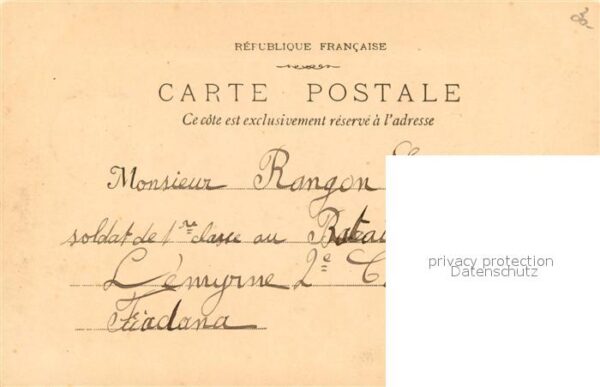 30-
RÉPUBLIQUE FRANÇAISE
CARTE POSTALE
Ce côte est exclusivement réservé à l'adresse
Monsieur Rangon
soldat de 1re classe au Batai
L'émyrne 2e C
Fiadana
privacy protection
Datenschutz